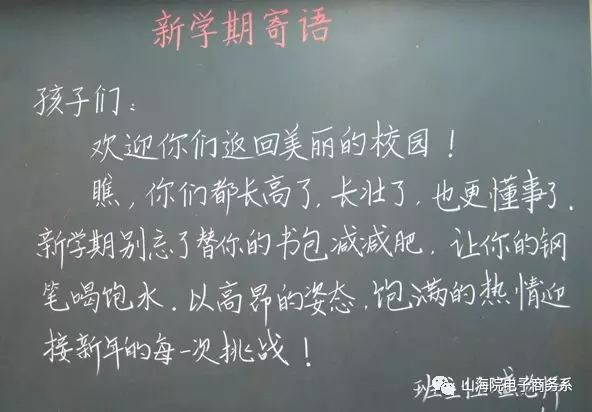 新学期寄语
孩子们：
欢迎你们返回美丽的校园！
瞧，你们都长高了，长壮了，也更懂事了．
新学期别忘了替你的书包减减肥，让你的钢
笔喝饱水．以高昂的姿态，饱满的热情迎
接新年的每一次挑战！
班主任
山海院电子商务系